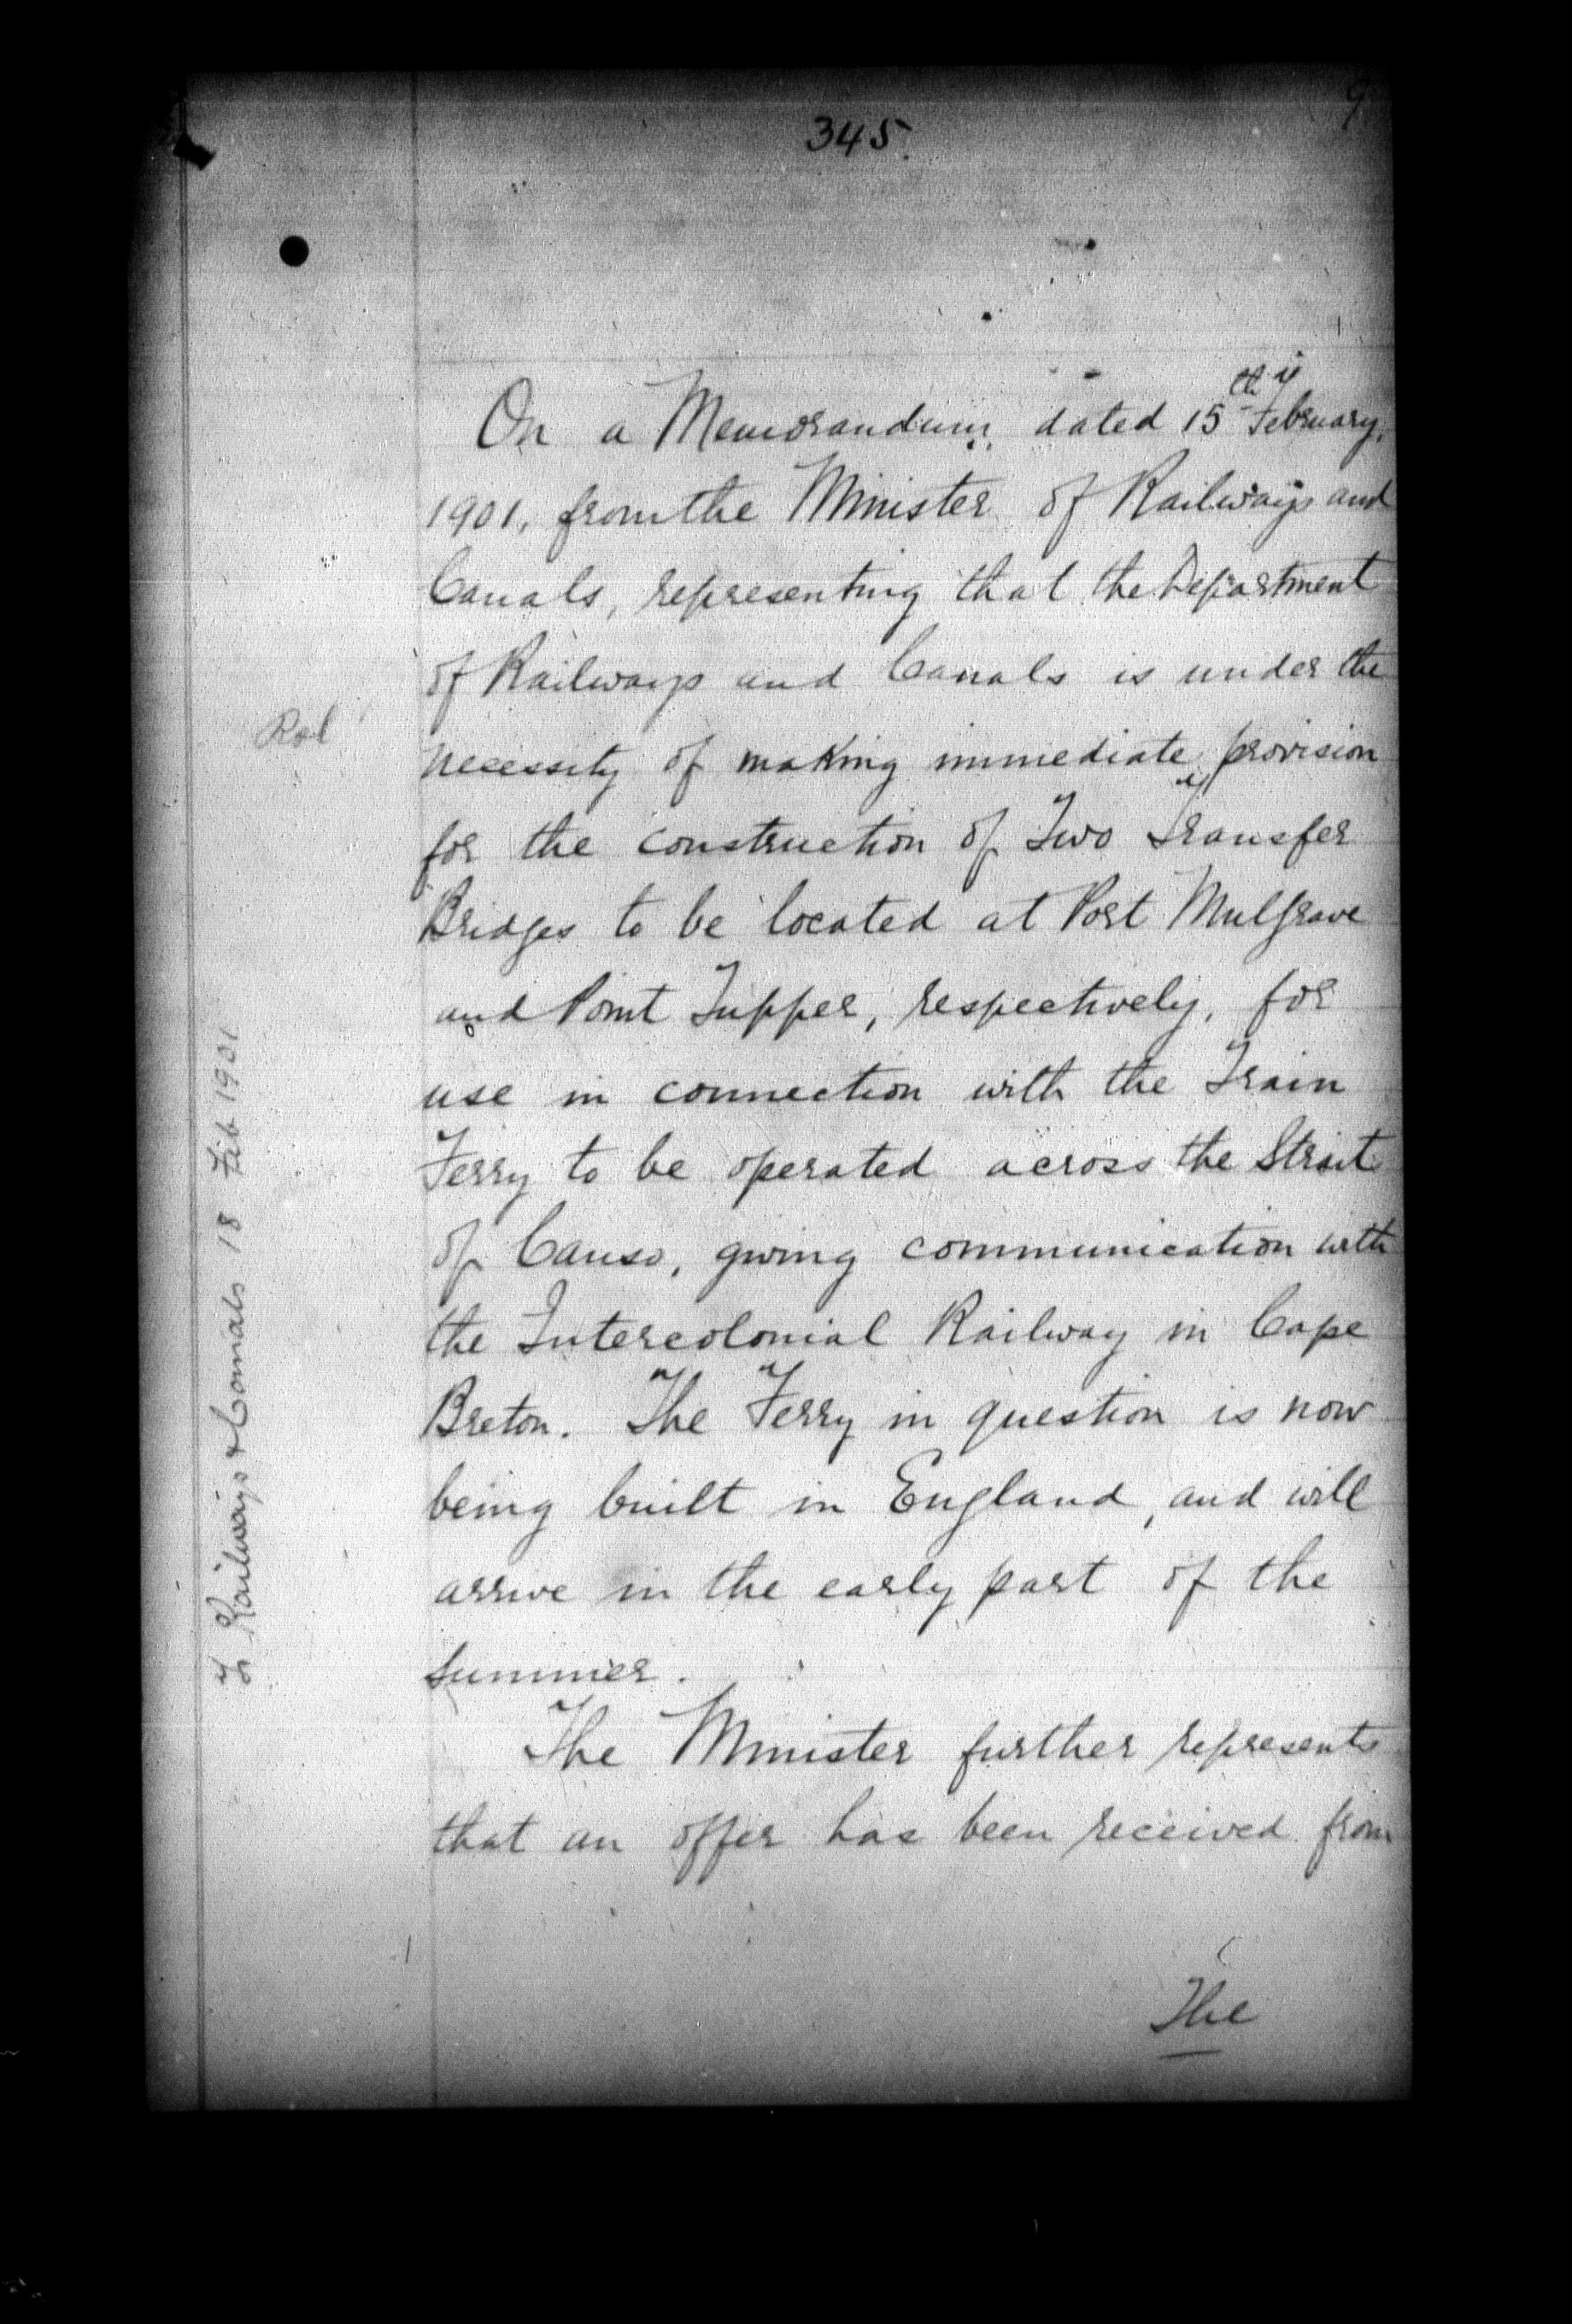 345.
9
On a Memorandum, dated 15th February,
1901, from the Minister of Railways and
Canals, representing that the Department
of Railways and Canals is under the
necessity of making immediate provision
for the construction of Two Transfer
Bridges to be located at Port Mulgrave
and Point Tupper, respectively, for
use in connection with the Train
Ferry to be operated across the Strait
of Canso, giving communication with
the Intercolonial Railway in Cape
Breton. The Ferry in question is now
being built in England, and will
arrive in the early part of the
summer.
The Minister further represents
that an offer has been received from
The
Railways & Canals 18 Feb 1901